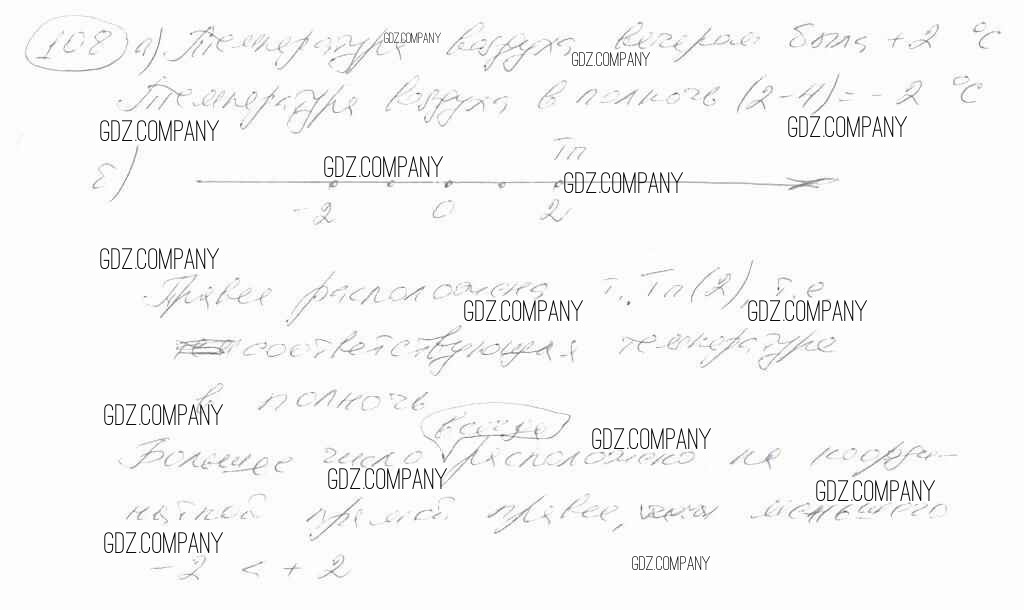 108 а). Температура воздуха вечером была +2 °C
GDZ.COMPANY
GDZ.COMPANY
Температура воздуха в полночь (2-4) = -2 °C
GDZ.COMPANY
GDZ.COMPANY
Тп
б)
GDZ.COMPANY
GDZ.COMPANY
-2 0 2
GDZ.COMPANY
Правее расположена т. Тп(2), т.е
GDZ.COMPANY
GDZ.COMPANY
соответствующая температуре
в полночь
GDZ.COMPANY
всегда
GDZ.COMPANY
Большее число расположено на коорди-
GDZ.COMPANY
GDZ.COMPANY
натной прямой правее, меньшего
GDZ.COMPANY
-2 < +2
GDZ.COMPANY